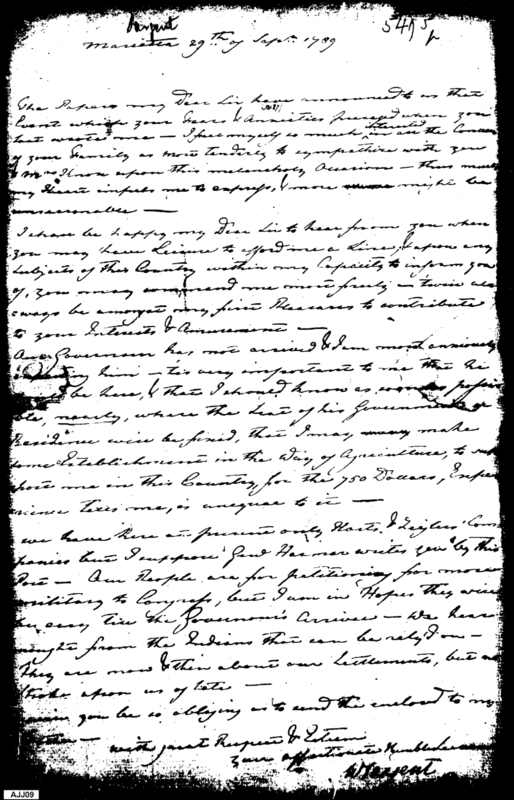 Sargent
5495
Marietta 29th of Septr. 1789
The Papers my Dear Sir have announced to us that
Event which your Fears & Anxieties presaged when you
last wrote me — I feel myself so much interested in all the Concerns
of your Family as most tenderly to sympathize with you
& Mrs Knox upon this melancholy Occasion — thus much
my Heart impels me to express, & more might be
unseasonable —
I shall be happy my Dear Sir to hear from you when
you may have Leisure to afford me a Line, & upon any
Subjects of this Country within my Capacity to inform you
of, you may command me most freely — twill al
ways be amongst my first Pleasures to contribute
to your Interests & Amusement —
Our Governour has not arrived & I am most anxiously
expecting him — tis very important to me that he
be here, & that I should know as possi
ble, nearly, where the Seat of his Government or
Residence will be fixed, that I may make
some Establishment in the Way of Agriculture, to sup
port me in this Country, for the 750 Dollars, Expe
rience tells me, is unequal to it —
we have here at present only Harts & Zeiglers Com
panies but I suppose Genl Harmar writes you by this
Post — Our People are for petitioning for more
military to Congress, but I am in Hopes they will
be easy till the Governour's Arrival — We hear
nought from the Indians that can be rely'd on —
They are now & then about our Settlements, but no
Stroke upon us of late —
will you be so obliging as to send the enclosed to my
with great Respect & Esteem
your affectionate Humble Servant
W Sargent
AJJ09